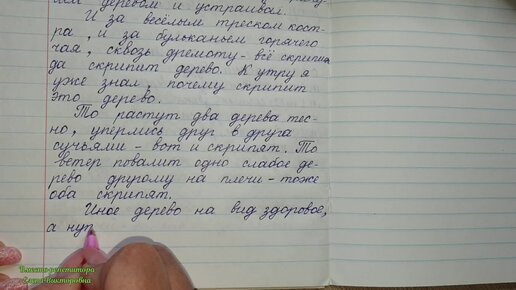 деревом и устраивал.
И за весёлым треском кост-
ра, и за бульканьем горячего
чая, сквозь дремоту - всё скрипи
да скрипит дерево. К утру я
уже знал, почему скрипит
это дерево.
То растут два дерева тес-
но, уперлись друг в друга
сучьями - вот и скрипят. То
ветер повалит одно слабое де-
рево другому на плечи - тоже
оба скрипят.
Иное дерево на вид здоровое,
а нут
репетитора
Викторовна